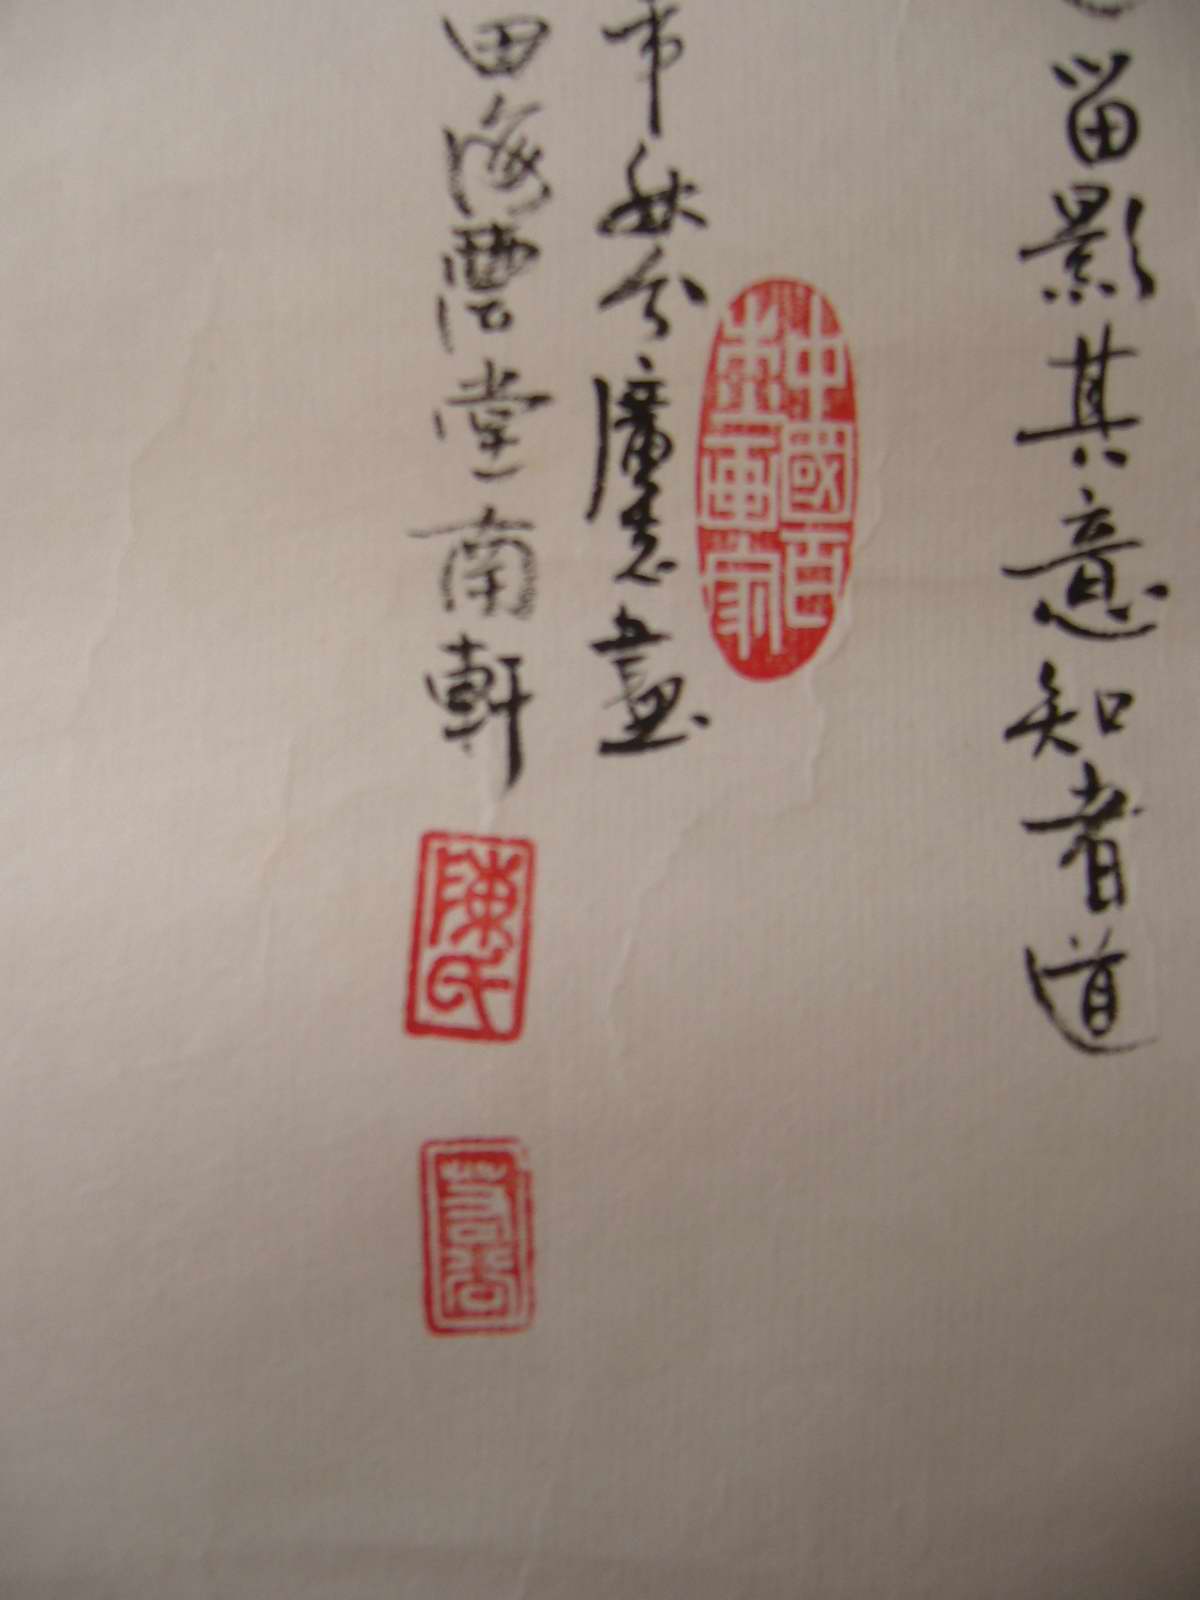 留影其意知者道
中國百
畫家
秋分廣志畫
田海雲堂南軒
陳氏